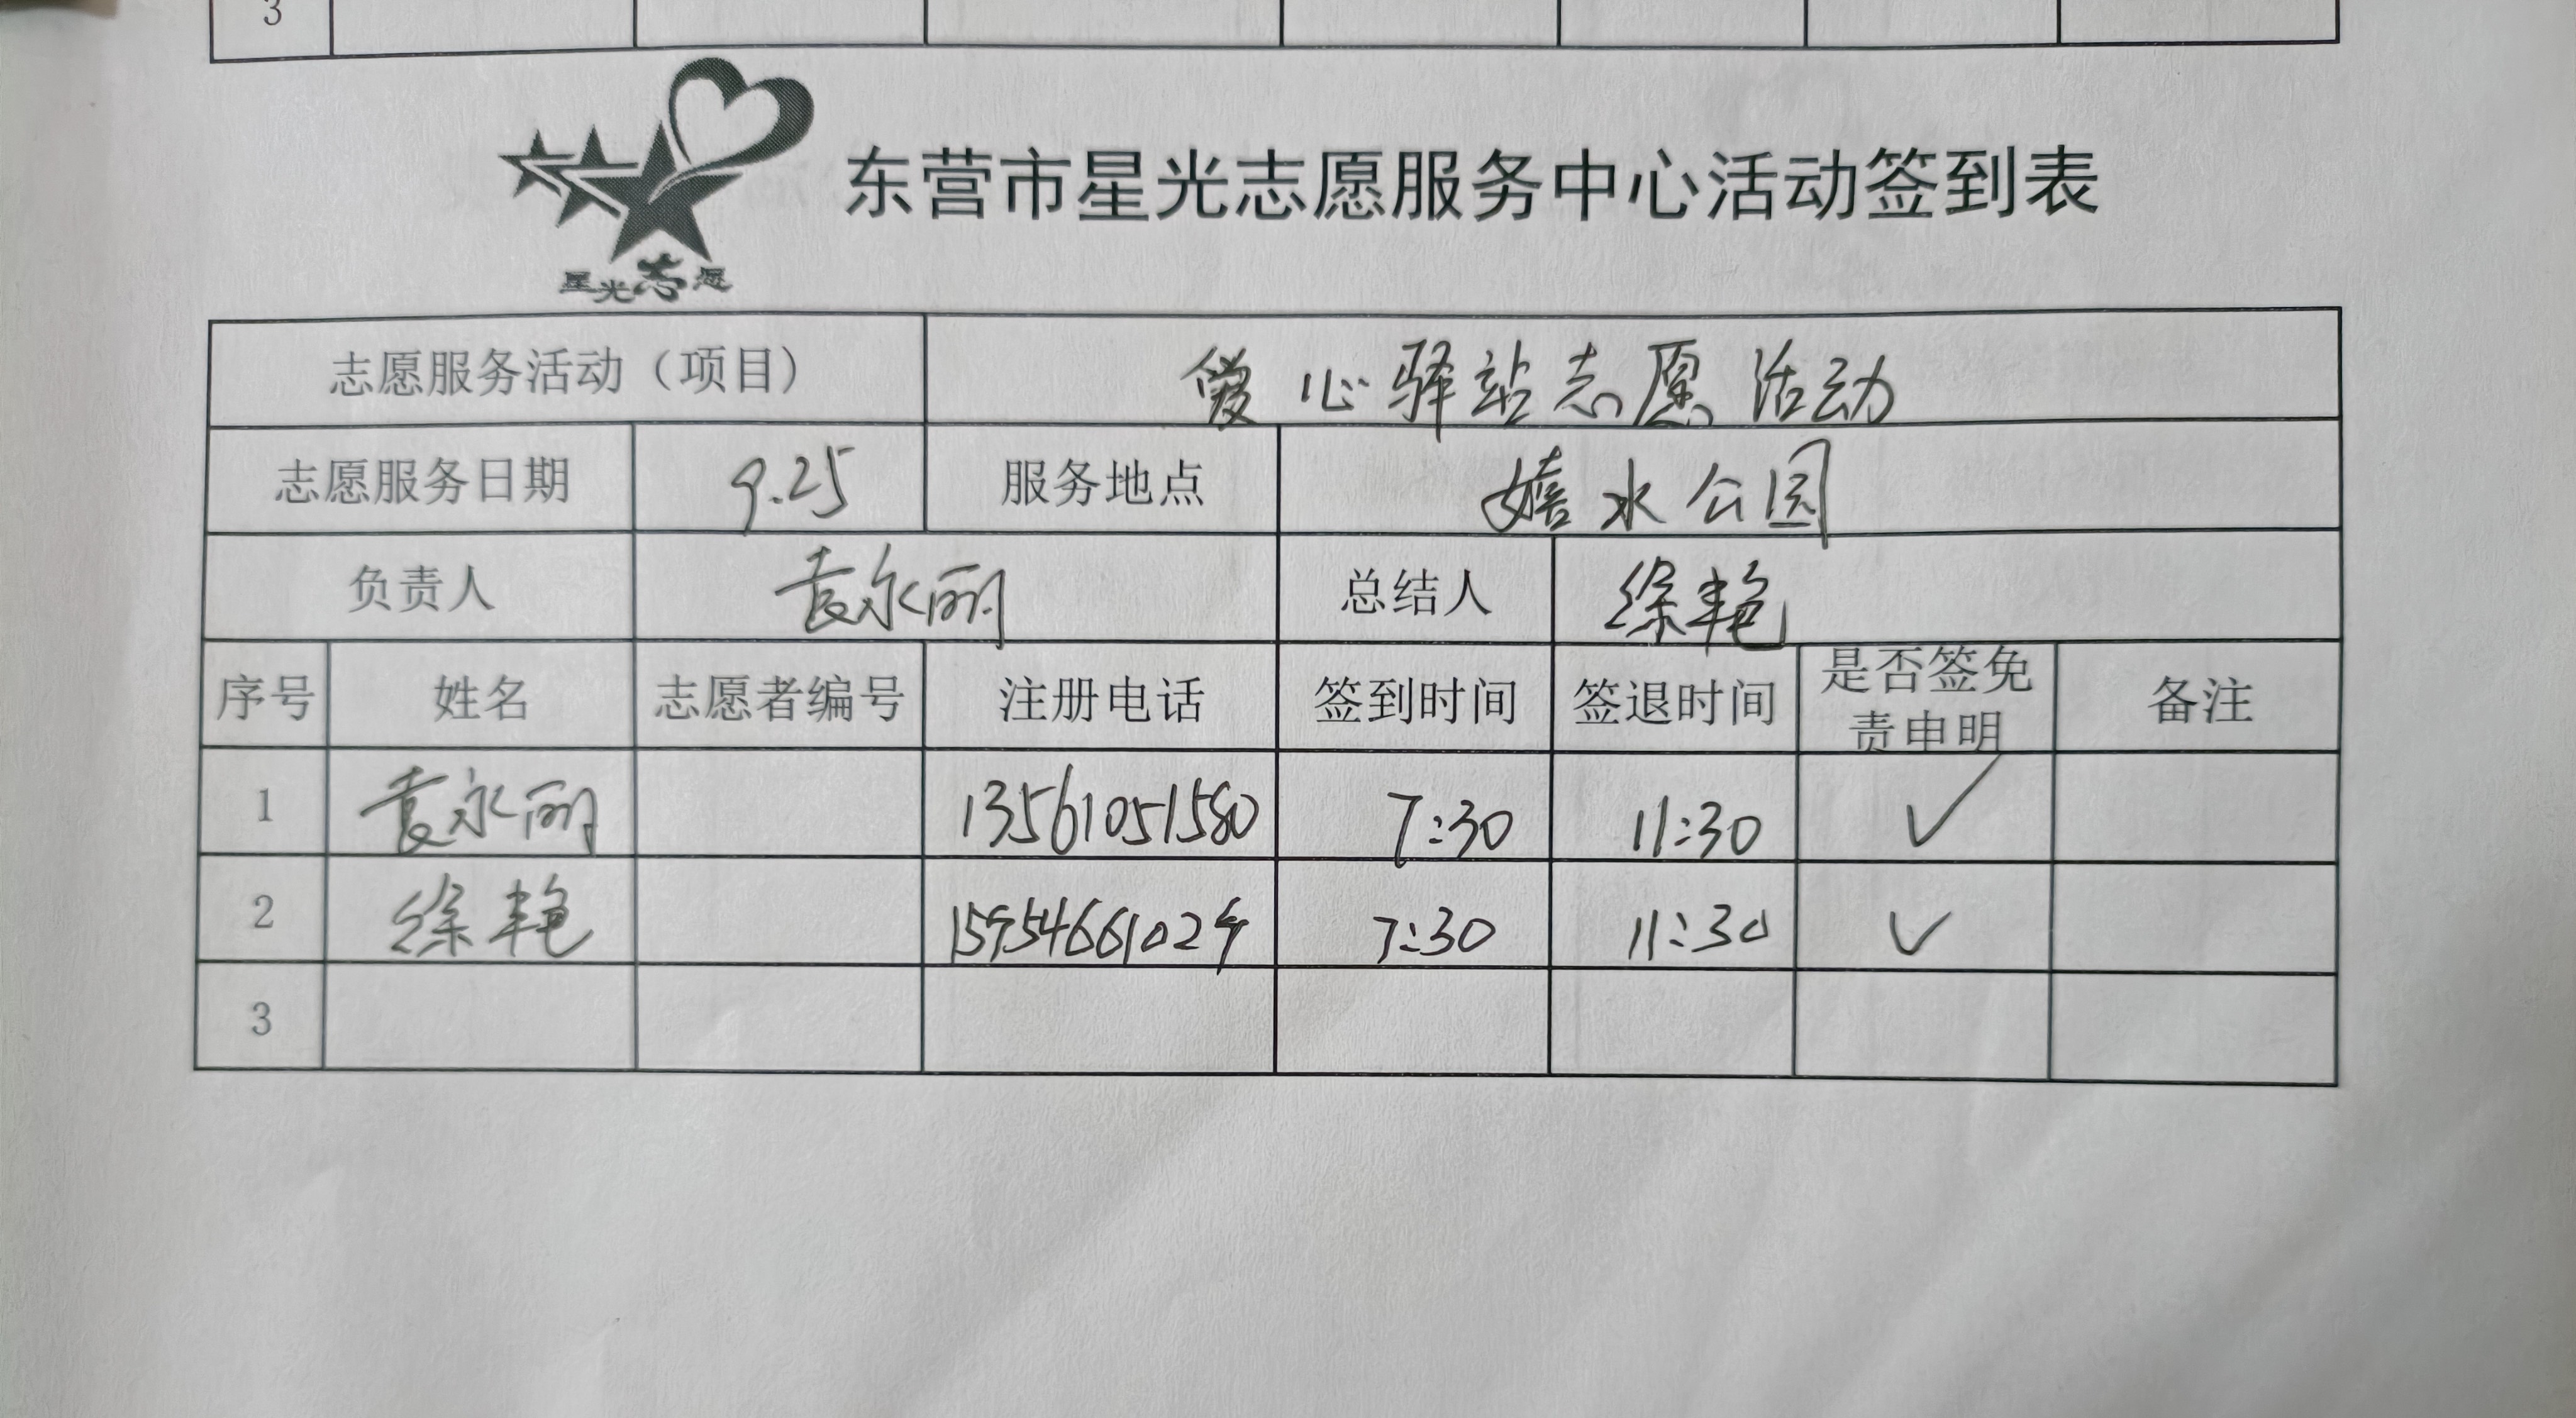 3
东营市星光志愿服务中心活动签到表
星光志愿
志愿服务活动（项目） 爱心驿站志愿活动
志愿服务日期 9.25 服务地点 嬉水公园
负责人 袁永丽 总结人 徐艳
序号 姓名 志愿者编号 注册电话 签到时间 签退时间 是否签免责申明 备注
1 袁永丽 13561051580 7:30 11:30 ✓
2 徐艳 7:30 11:30 ✓
3